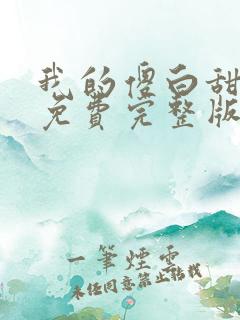 我的傻白甜
免費完整版
一筆煙雲
未经同意禁止转载